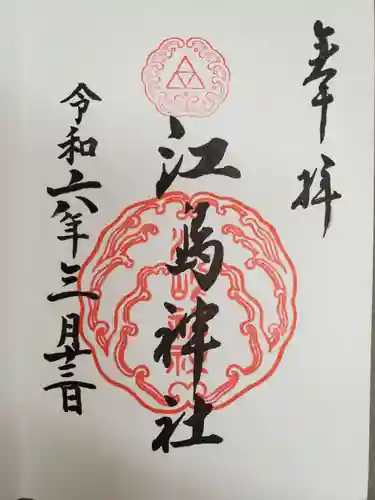 奉拝
江島神社
令和六年三月十三日